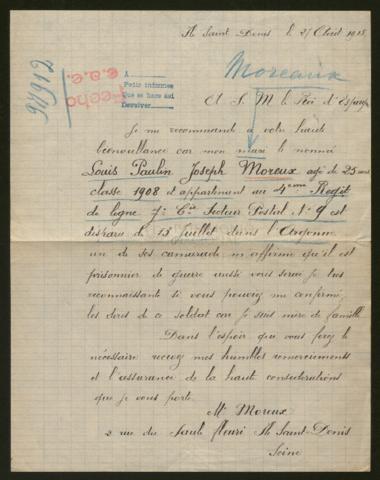 Ile Saint Denis le 27 Août 1915
Moreaux
911912
Fecho
A
Petic informes
Que se hara asi
Devolver
A S. M le Roi d'Espagne
Je me recommande à votre haute
bienveillance car mon mari le nommé
Louis Paulin Joseph Moreux agé de 25 ans
classe 1908 et appartenant au 4eme Regit
de ligne 7e Cie Secteur Postal N° 9 est
disparu le 13 Juillet dans l'Argonne
un de ses camarade m'affirme qu'il est
prisonnier de guerre aussi vous serai je tres
reconnaissante si vous pouviez me confirmé
les dires de ce soldat car je suis mère de famille
Dans l'espoir que vous ferez le
nécessaire recevez mes humbles remerciements
et l'assurance de la haute considerations
que je vous porte.
Me Moreux
2 rue du Saule fleuri Ile Saint-Denis
Seine